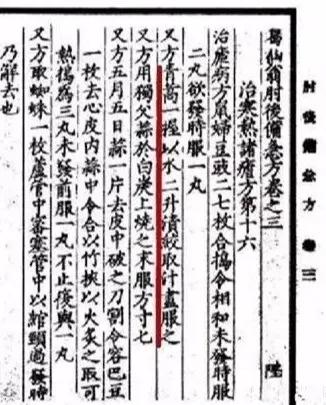 肘後備急方 卷三
葛仙翁肘後備急方卷之三
治寒熱諸瘧方第十六
治瘧病方鼠婦豆豉二七枚合搗令相和未發時服
二丸欲發時服一丸
又方青蒿一握以水二升漬絞取汁盡服之
又方用獨父蒜於白炭上燒之末服方寸七
又方五月五日蒜一片去皮中破之刀割令容巴豆
一枚去心皮內蒜中令合以竹挾以火炙之取可
熱搗為三丸未發前服一丸不止復與一丸
又方取蜘蛛一枚蘆管中密塞管中以綰頸過發時
乃解去也